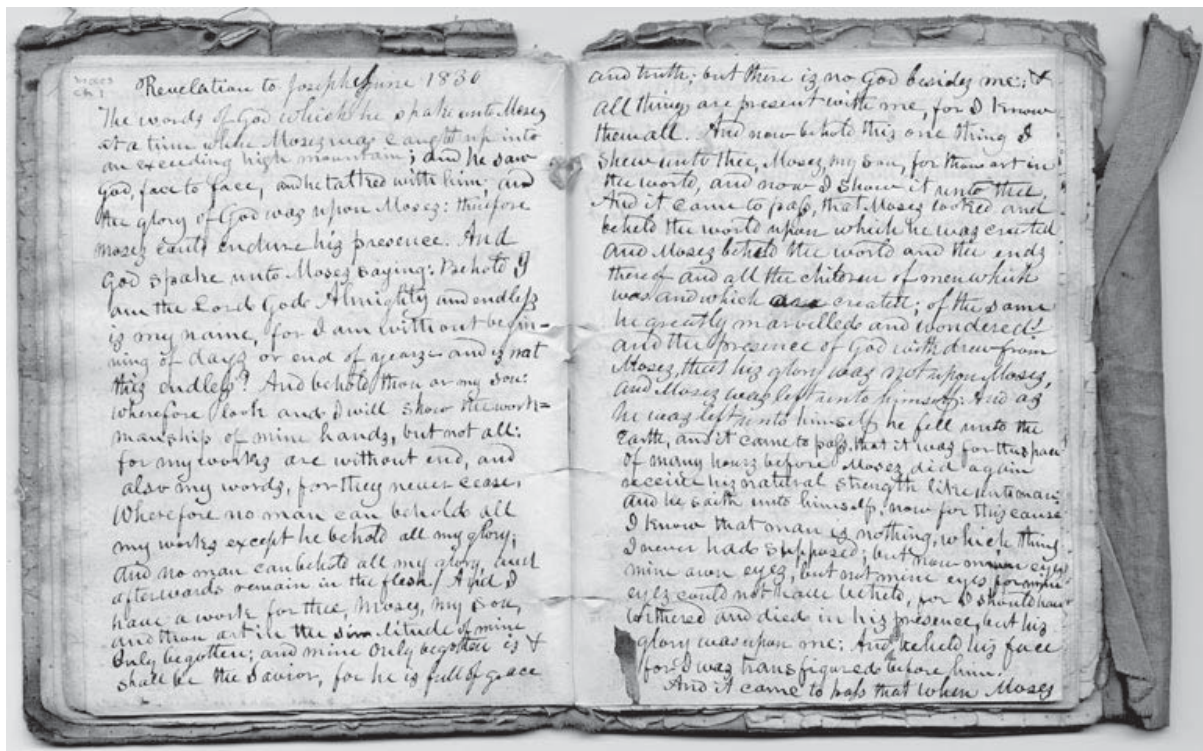 Moses
ch 1
Revelation to Joseph June 1830
The words of God which he spake unto Mosez
at a time when Mosez was caught up into
an exceeding high mountain; and he saw
God, face to face, and he talked with him; and
the glory of God was upon Mosez: therefore
mosez could endure his presence. And
God spake unto Mosez saying: Behold I
am the Lord God Almighty and endless
is my name, for I am without begin=
ning of dayz or end of yearz and iz not
this endless? And behold thou ar my son:
wherefore look and I will show the work=
manship of mine hands, but not all:
for my workz are without end, and
also my words, for they never cease.
Wherefore no man can behold all
my works except he behold all my glory;
and no man can behold all my glory, and
afterwards remain in the flesh. And I
have a work for thee, Mosez, my son,
and thou art in the similitude of mine
Only begotten; and mine Only begotten is &
shall be the Savior, for he is full of grace
and truth; but there iz no God besidez me: &
all things are present with me, for I know
them all. And now behold this one thing I
shew unto thee, Mosez, my son, for thou art in
the world, and now I shew it unto thee.
And it came to pass, that Mosez looked and
beheld the world upon which he was created
and Mosez beheld the world and the endz
thereof and all the children of men which
was and which are created; of the same
he greatly marvelled and wondered!
and the presence of God withdrew from
Mosez, that his glory waz not upon Mosez,
and Mosez waz left unto himself: And az
he waz left unto himself, he fell unto the
Earth, and it came to pass, that it waz for the space
of many hours before Mosez did again
receive hiz natural strength like unto man;
and he saith unto himself, now for this cause
I know that man is nothing, which thing
I never had supposed; but now eyes
mine own eyez, but not mine eyes for mine
eyez could not have beheld, for I should have
withered and died in his presence, but hiz
glory was upon me: And beheld his face
for I waz transfigured before him.
And it came to pass that when Moses